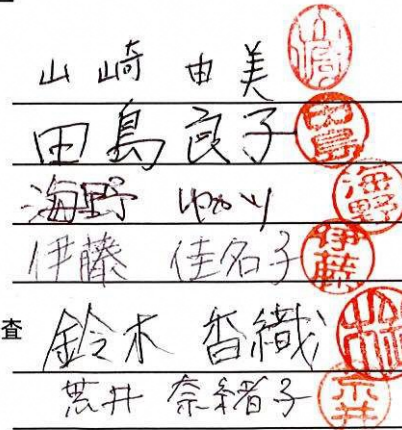 山崎 由美
田島良子 田島
海野 ゆかり 海野
伊藤 佳名子 伊藤
査 鈴木 香織
荒井 奈緒子 荒井